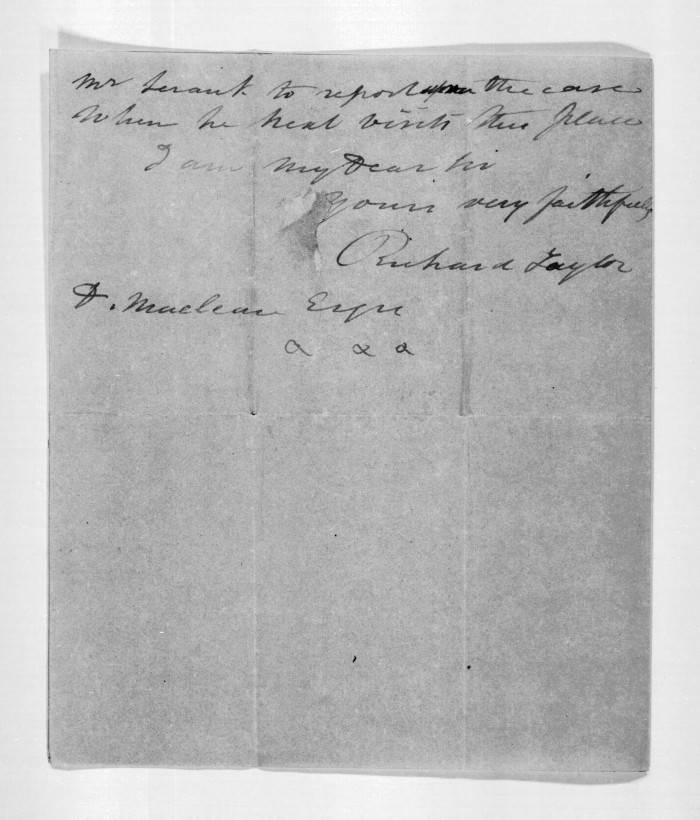 Mr to report upon the case
When he next visits this place
I am My Dear Sir
Yours very faithfully
Richard Taylor
D. Maclean Esqre
&c &c &c